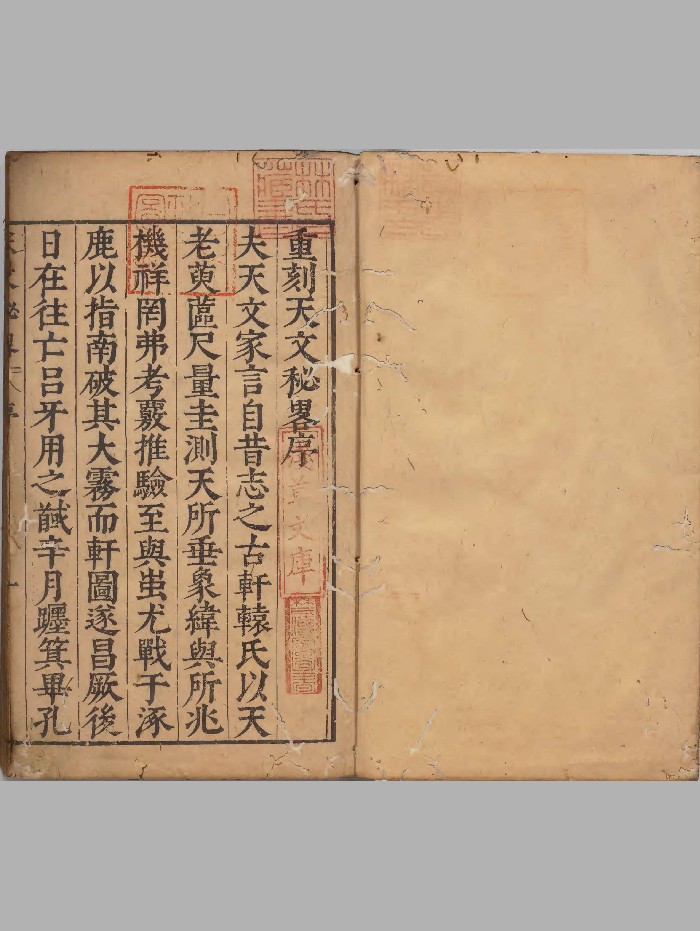 重刻天文秘畧序
夫天文家言自昔志之古軒轅氏以天
老䓇蓲尺量圭測天所垂象緯與所兆
機祥罔弗考覈推驗至與蚩尤戰于涿
鹿以指南破其大霧而軒圖遂昌厥後
日在往亡呂牙用之馘辛月躔箕畢孔
文庫